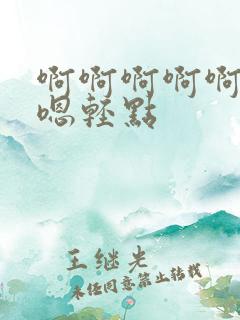 啊啊啊啊啊
嗯轻點
王继光
未经同意禁止转载